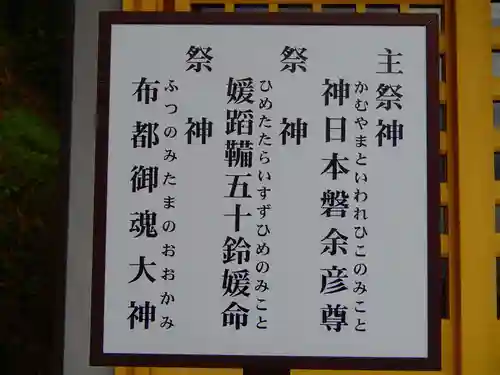 主祭神
かむやまといわれひこのみこと
神日本磐余彦尊
祭神
ひめたたらいすずひめのみこと
媛蹈鞴五十鈴媛命
祭神
ふつのみたまのおおかみ
布都御魂大神